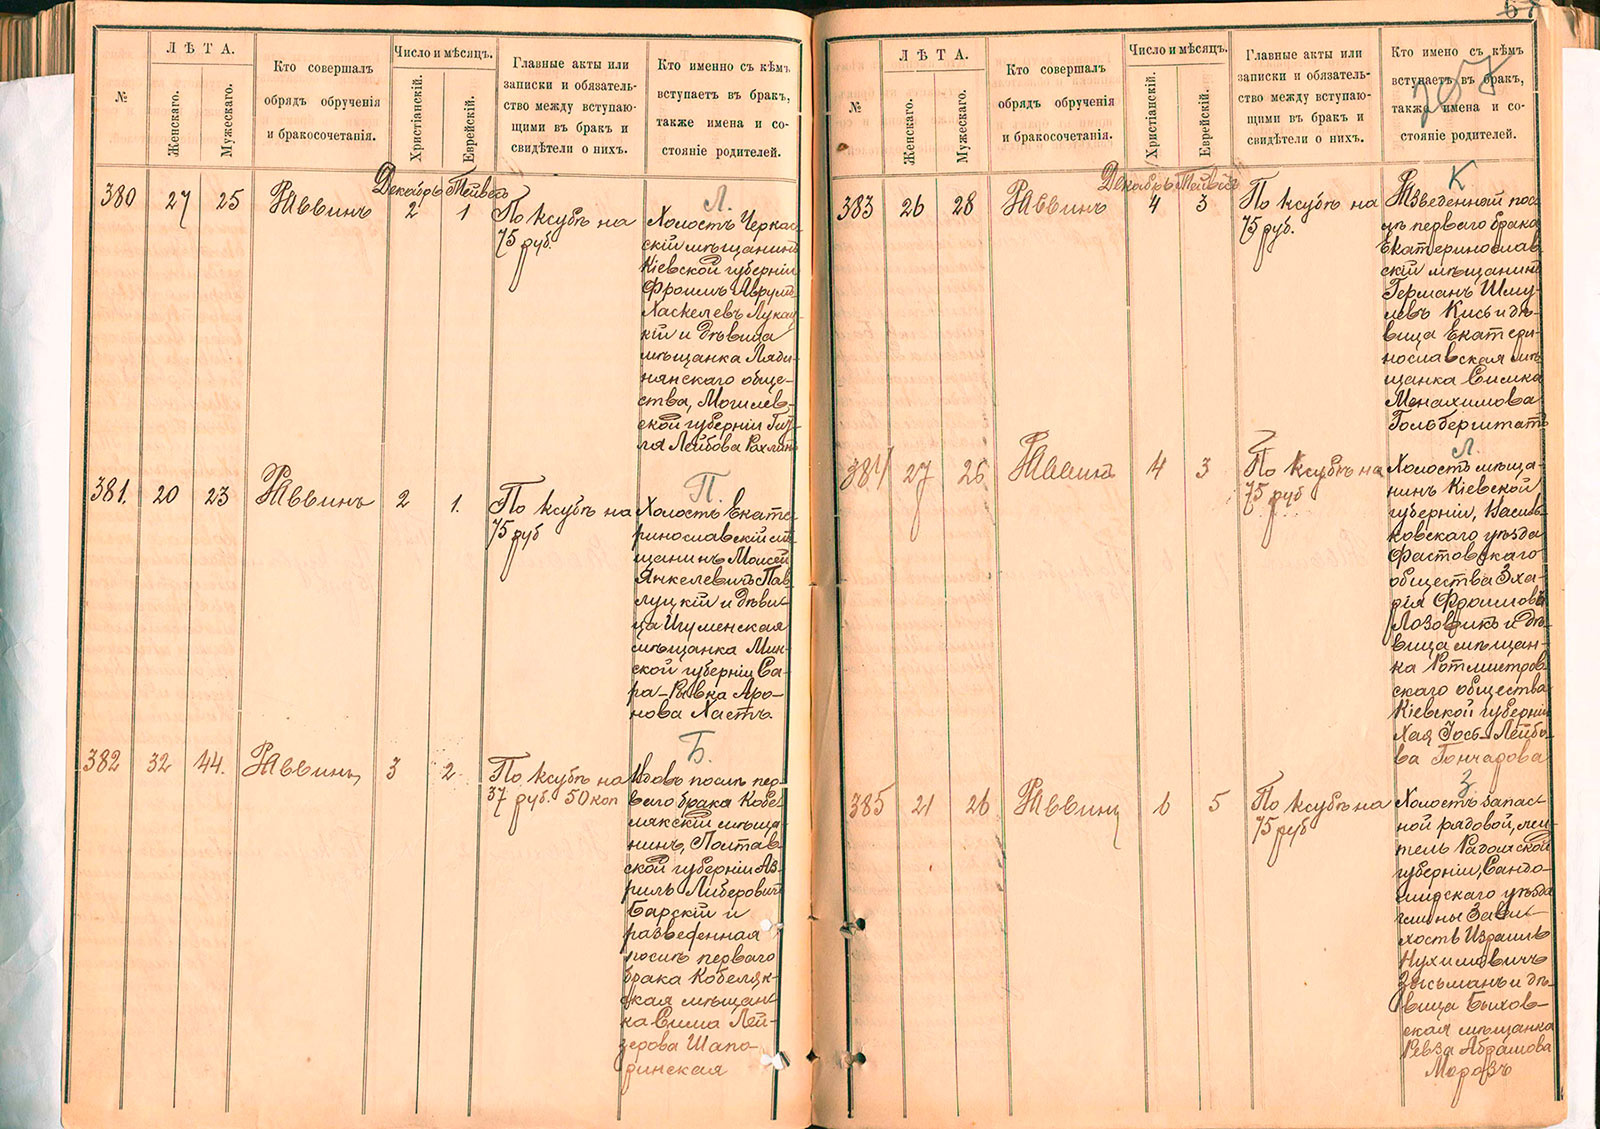 67
207
№
ЛѢТА.
Женскаго.
Мужескаго.
Кто совершалъ
обрядъ обрученія
и бракосочетанія.
Число и мѣсяцъ.
Христіанскій.
Еврейскій.
Главные акты или
записки и обязатель-
ство между вступаю-
щими въ бракъ и
свидѣтели о нихъ.
Кто именно съ кѣмъ
вступаетъ въ бракъ,
также имена и со-
стояніе родителей.
Декабрь Тейвесъ
380 27 25 Раввинъ 2 1 По ксубѣ на
75 руб.
Л.
Холостъ Черкас-
скій мѣщанинъ
Кіевской губерніи
Фроимъ Аврумъ
Хаскелевъ Лукац-
кій и дѣвица
мѣщанка Ляди-
нянскаго обще-
ства, Могилев-
ской губерніи Гиту-
ля Лейбова Рахлинъ
381. 20 23 Раввинъ 2 1. По ксубѣ на
75 руб
П.
Холостъ Екате-
ринославскій мѣ-
щанинъ Моисей
Янкелевичъ Пав-
луцкій и дѣви-
ца Игуменская
мѣщанка Мин-
ской губерніи Са-
ра-Рывка Аро-
нова Хастъ
382 32 44. Раввинъ 3 2 По ксубѣ на
37 руб. 50 коп
Б.
Вдовъ послѣ пер-
ваго брака Кобе-
лякскій мѣща-
нинъ, Полтав-
ской губерніи Аз-
риль Либеровичъ
Барскій и
разведенная
послѣ перваго
брака Кобеляк-
ская мѣщан-
ка Сима Лей-
зерова Шапо-
ринская
№
ЛѢТА.
Женскаго.
Мужескаго.
Кто совершалъ
обрядъ обрученія
и бракосочетанія.
Число и мѣсяцъ.
Христіанскій.
Еврейскій.
Главные акты или
записки и обязатель-
ство между вступаю-
щими въ бракъ и
свидѣтели о нихъ.
Кто имено съ кѣмъ
вступаетъ въ бракъ,
также имена и со-
стояніе родителей.
Декабрь Тейвесъ
383 26 28 Раввинъ 4 3 По ксубѣ на
75 руб.
К
Разведенный пос-
лѣ перваго брака
Екатеринослав-
скій мѣщанинъ
Германъ Шму-
левъ Кисъ и дѣ-
вица Екатери-
нославская мѣ-
щанка Симка
Менахимова
Гольберштатъ
384 27 25 Раввинъ 4 3 По ксубѣ на
75 руб
Л.
Холостъ мѣща-
нинъ Кіевской
губерніи, Василь-
ковскаго уѣзда
Фастовскаго
общества Зха-
рія Фроимовъ
Лозовикъ и дѣ-
вица мѣщан-
ка Ротмистров-
скаго общества
Кіевской губерніи
Хая Гось-Лейбо-
ва Гончарова
385 21 26 Раввинъ 6 5 По ксубѣ на
75 руб
З.
Холостъ запас-
ной рядовой, жи-
тель Радомской
губерніи, Сандо-
мирскаго уѣзда
гмины Завих-
хостъ Израиль
Нухимовичъ
Зысьманъ и дѣ-
вица Быхов-
ская мѣщанка
Ревза Абрамова
Морозъ